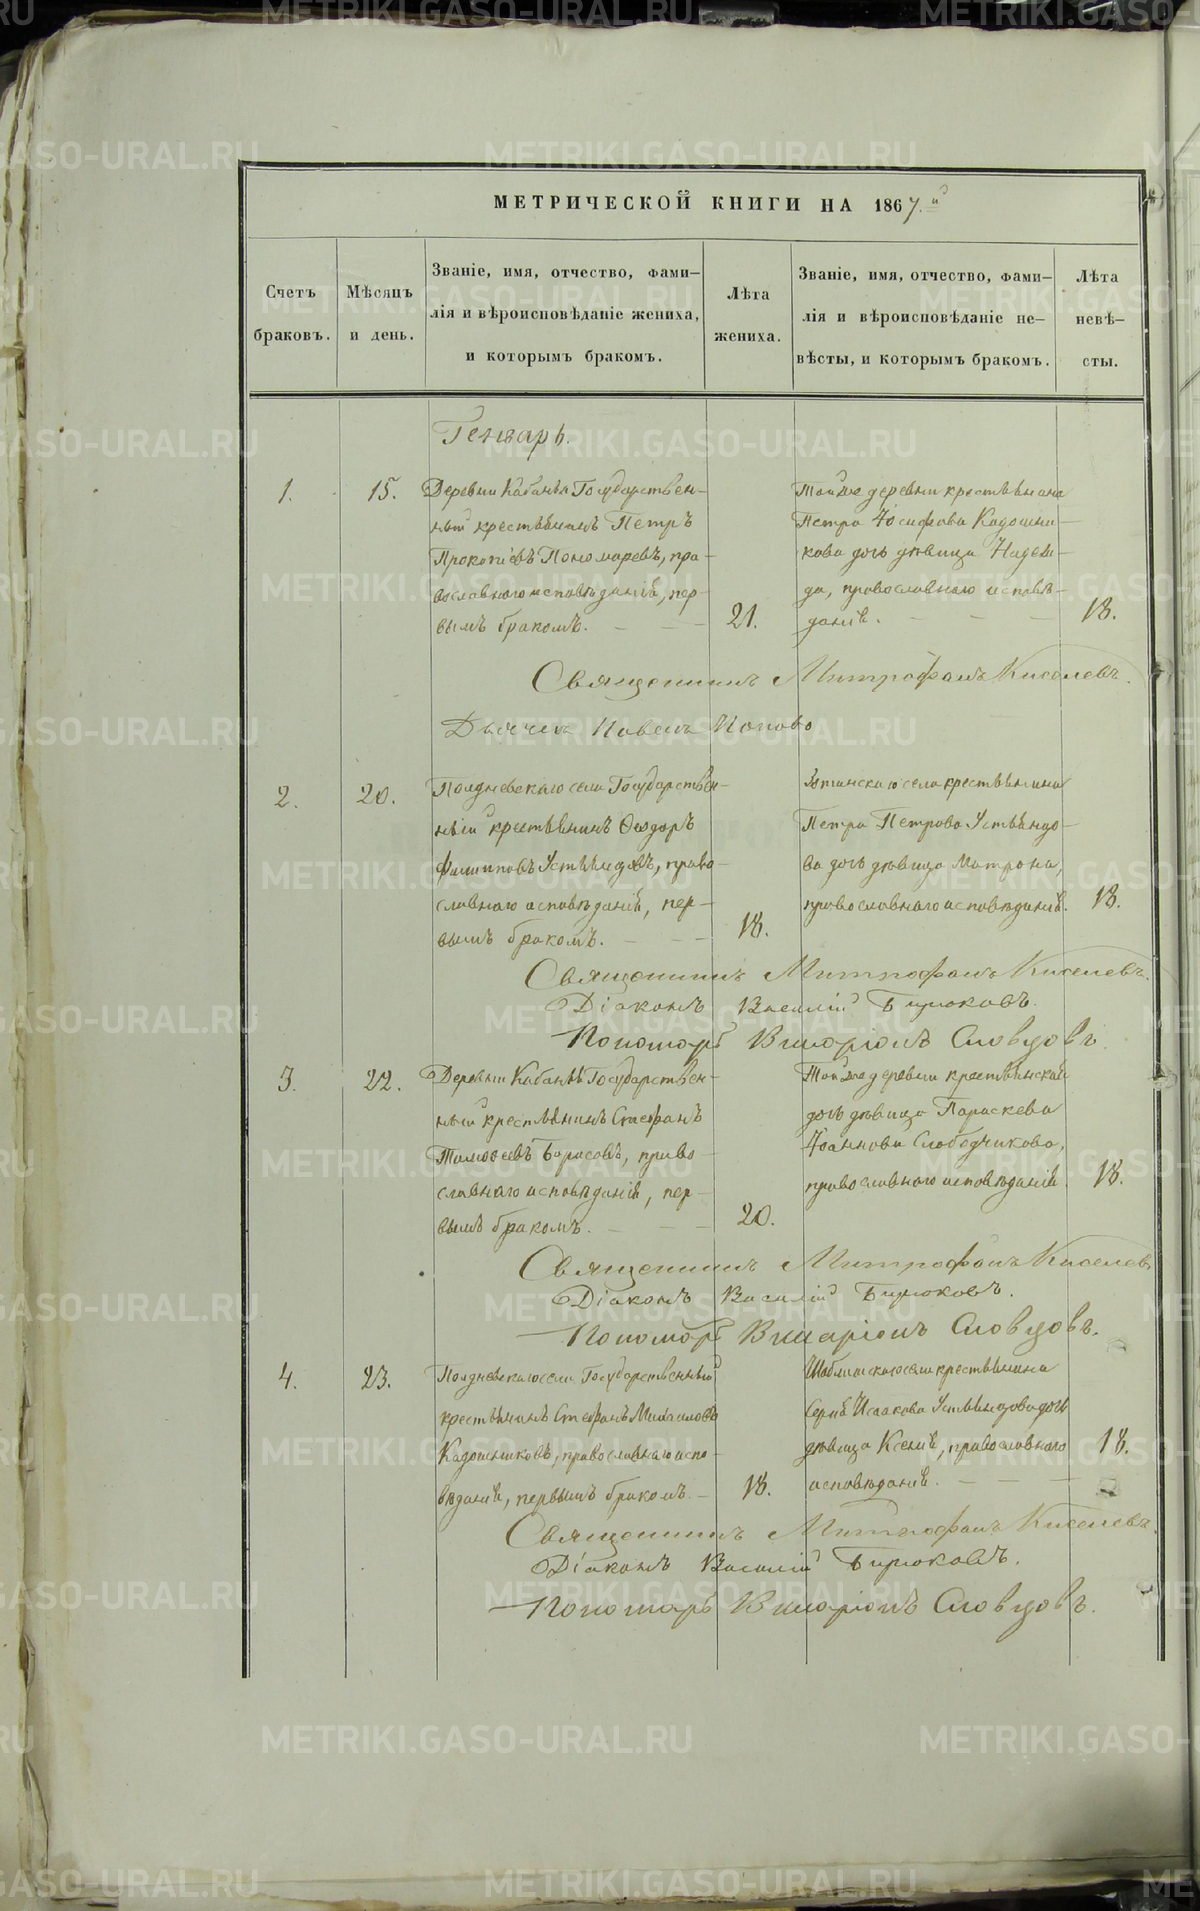 МЕТРИЧЕСКОЙ КНИГИ НА 1867.й
Счетъ браковъ.
Мѣсяцъ и день.
Званіе, имя, отчество, фами-
лія и вѣроисповѣданіе жениха,
и которымъ бракомъ.
Лѣта жениха.
Званіе, имя, отчество, фами-
лія и вѣроисповѣданіе не-
вѣсты, и которымъ бракомъ.
Лѣта невѣ-
сты.
Генварь.
1.
15.
Деревни Кабаньи Государствен-
ный крестьянинъ Петръ
Прокопіевъ Пономаревъ, пра-
вославнаго исповѣданія, пер-
вымъ бракомъ.
21.
Той же деревни крестьянина
Петра Іосифова Кадошни-
кова дочь дѣвица Надеж-
да, православнаго исповѣ-
данія.
18.
Священникъ Митрофанъ Киселевъ.
Дьячекъ Павелъ Поповъ
2.
20.
Полдневскаго села Государствен-
ный крестьянинъ Ѳеодоръ
Филипповъ Устьянцовъ, право-
славнаго исповѣданія, пер-
вымъ бракомъ.
18.
села крестьянина
Петра Петрова Устьянцо-
ва дочь дѣвица Матрона,
православнаго исповѣданія.
18.
Священникъ Митрофанъ Киселевъ.
Діаконъ Василій Бирюковъ.
Пономарь Иларіонъ Словцовъ.
3.
22.
Деревни Кабаньи Государствен-
ный крестьянинъ Стефанъ
Тимоѳеевъ Борисовъ, право-
славнаго исповѣданія, пер-
вымъ бракомъ.
20.
Той же деревни крестьянская
дочь дѣвица Параскева
Іоаннова Слободчикова,
православнаго исповѣданія.
18.
Священникъ Митрофанъ Киселевъ
Діаконъ Василій Бирюковъ.
Пономарь Иларіонъ Словцовъ.
4.
23.
Полдневскаго села Государственный
крестьянинъ Стефанъ Михаиловъ
Кадошниковъ, православнаго испо-
вѣданія, первымъ бракомъ.
18.
села крестьянина
Исаакова Устьянцова дочь
дѣвица Ксенія, православнаго
исповѣданія.
18.
Священникъ Митрофанъ Киселевъ.
Діаконъ Василій Бирюковъ.
Пономарь Иларіонъ Словцовъ.
METRIKI.GASO-URAL.RU